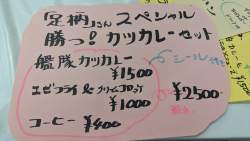 「足柄」さん スペシャル
勝っ!カツカレーセット
艦隊カツカレー
¥1500
シール付き
エビフライ&クリームコロッケ
¥1000
¥2500
税込
コーヒー ¥400